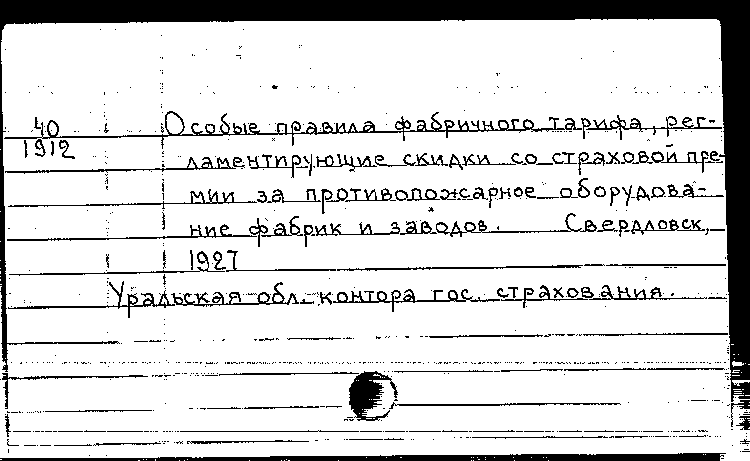 40
1912
Особые правила фабричного тарифа, рег-
ламентирующие скидки со страховой пре-
мии за противопожарное оборудова-
ние фабрик и заводов. Свердловск,
1927
Уральская обл. контора гос. страхования.